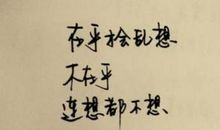 在乎会乱想
不在乎
连想都不想